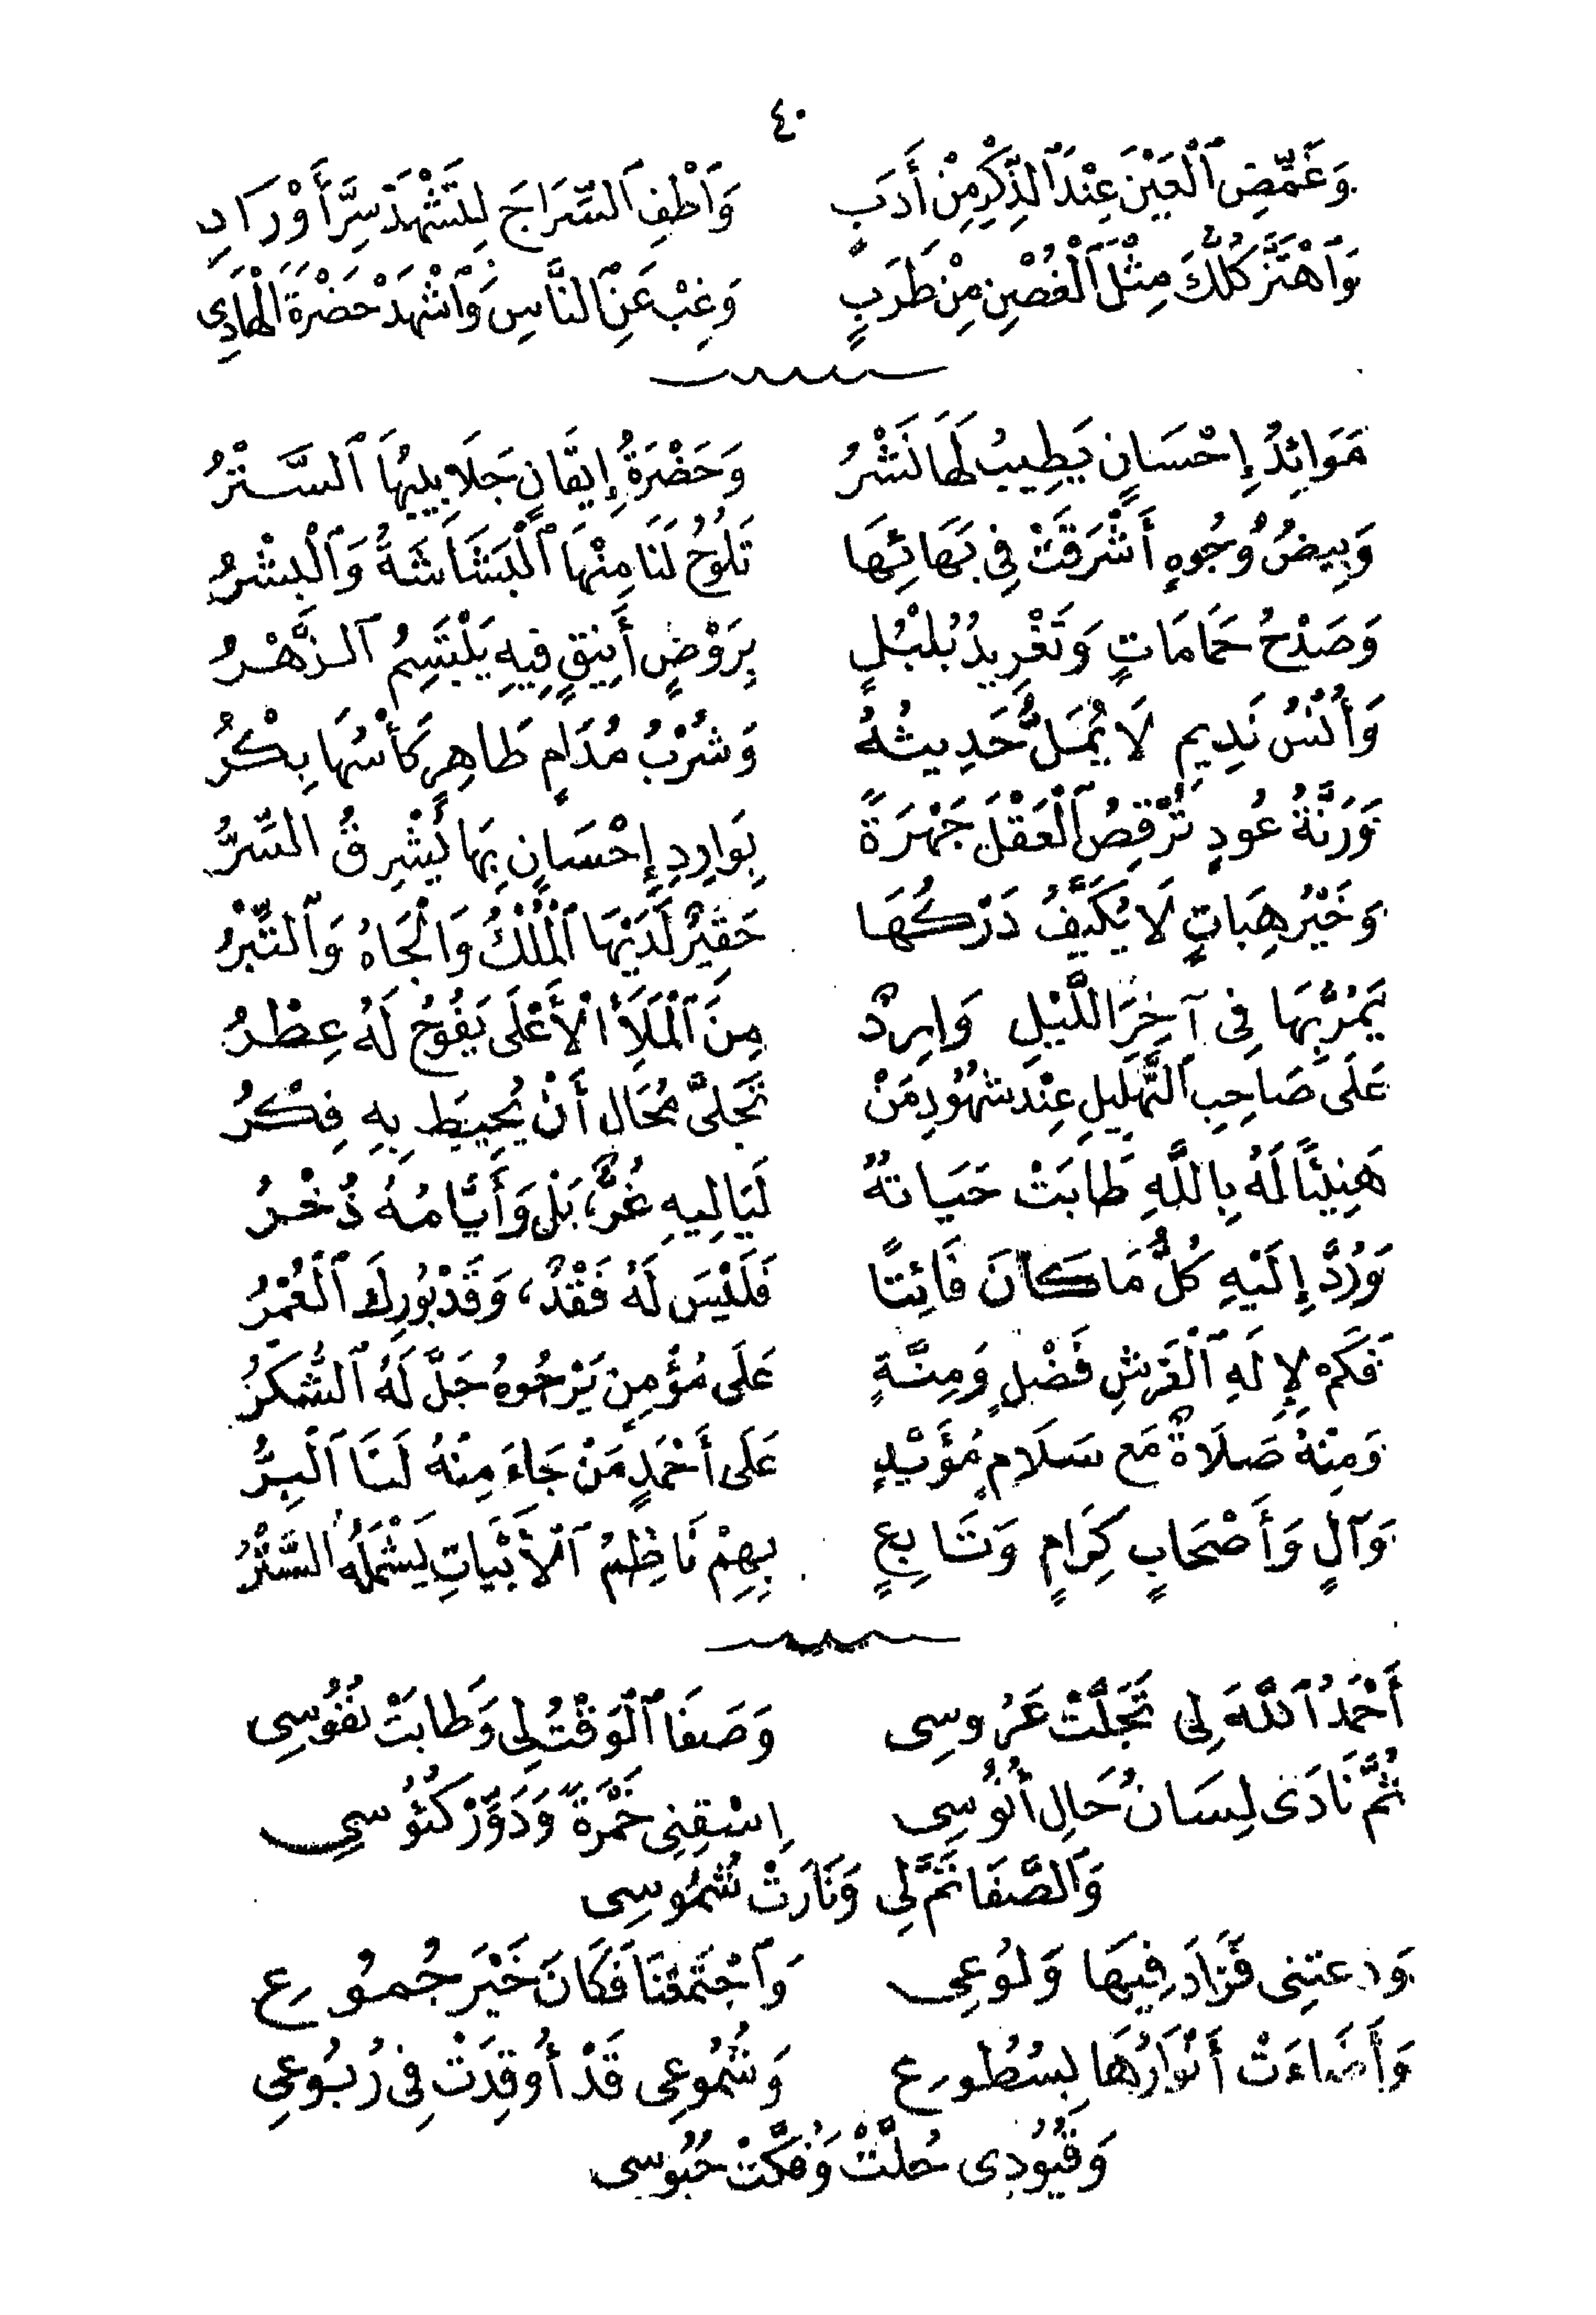 ٤٠
وَغَمِّضِ ٱلْعَيْنَ عِنْدَ ٱلذِّكْرِ مِنْ أَدَبٍ وَٱطْفِ ٱلسِّرَاجَ لِتَشْهَدْ سِرَّ أَوْرَادِ
وَٱهْتَزَّ كُلُّكَ مِثْلَ ٱلْغُصْنِ مِنْ طَرَبٍ وَغِبْ عَنِ ٱلنَّاسِ وَٱشْهَدْ حَضْرَةَ الْهَادِي
مَوَائِدُ إِحْسَانٍ يَطِيبُ لَهَا نَشْرُ وَحَضْرَةُ إِيقَانٍ جَلَابِيبُهَا ٱلسَّتْرُ
وَبِيضُ وُجُوهٍ أَشْرَقَتْ فِي بَهَائِهَا تَلُوحُ لَنَا مِنْهَا ٱلْبَشَاشَةُ وَٱلْبِشْرُ
وَصَدْحُ حَمَامَاتٍ وَتَغْرِيدُ بُلْبُلٍ بِرَوْضٍ أَنِيقٍ فِيهِ يَبْتَسِمُ ٱلزَّهْرُ
وَأُنْسُ نَدِيمٍ لَا يُمَلُّ حَدِيثُهُ وَشُرْبُ مُدَامٍ طَاهِرٍ كَأْسُهَا بِكْرُ
وَرَنَّةُ عُودٍ تُرْقِصُ ٱلْعَقْلَ جَهْرَةً بِوَارِدِ إِحْسَانٍ بِهَا يُشْرِقُ السِّرُّ
وَخَيْرُ هِبَاتٍ لَا يُكَيَّفُ دَرْكُهَا حَقِيرٌ لَدَيْهَا ٱلْمُلْكُ وَالْجَاهُ وَٱلتِّبْرُ
يَمُرُّ بِهَا فِي آخِرِ اللَّيْلِ وَارِدٌ مِنَ ٱلْمَلَأِ ٱلْأَعْلَى يَفُوحُ لَهُ عِطْرُ
عَلَى صَاحِبِ ٱلتَّهْلِيلِ عِنْدَ شُهُودِ مَنْ تَجَلَّى مُحَالٍ أَنْ يُحِيطَ بِهِ فِكْرُ
هَنِيئًا لَهُ بِاللَّهِ طَابَتْ حَيَاتُهُ لَيَالِيهِ غُرٌّ، بَلْ وَأَيَّامُهُ ذُخْرُ
وَرُدَّ إِلَيْهِ كُلُّ مَا كَانَ فَائِتًا فَلَيْسَ لَهُ فَقْدٌ، وَقَدْ بُورِكَ ٱلْعُمْرُ
فَكَمْ لِإِلَهِ ٱلْعَرْشِ فَضْلٍ وَمِنَّةٍ عَلَى مُؤْمِنٍ يَرْجُوهُ جَلَّ لَهُ ٱلشُّكْرُ
وَمِنْهُ صَلَاةٌ مَع سَلَامٍ مُؤَيَّدٍ عَلَى أَحْمَدٍ مَنْ جَاءَ مِنْهُ لَنَا ٱلْبِرُّ
وَآلٍ وَأَصْحَابٍ كِرَامٍ وَتَابِعٍ بِهِمْ نَاظِمُ ٱلْأَبْيَاتِ يَشْمَلُهُ السَّتْرُ
أَحْمَدُ ٱللَّهَ لِي تَجَلَّتْ عَرُوسِي وَصَفَا ٱلْوَقْتُ لِي وَطَابَتْ نُفُوسِي
ثُمَّ نَادَى لِسَانُ حَالِ أُنُوسِي اِسْقِنِي خَمْرَةً وَدَوِّرْ كُئُوسِي
وَٱلصَّفَا تَمَّ لِي وَنَارَتْ شُمُوسِي
وَدعَتِنِي فَزَادَ فِيهَا وَلُوعِي وَٱجْتَمَعْنَا فَكَانَ خَيْرَ جُمُوعِ
وَأَضَاءَتْ أَنْوَارُهَا بِسُطُوعِ وَشُمُوعِي قَدْ أُوقِدَتْ فِي رُبُوعِي
وَقُيُودِي حُلَّتْ وَفُكَّتْ حُبُوسِي